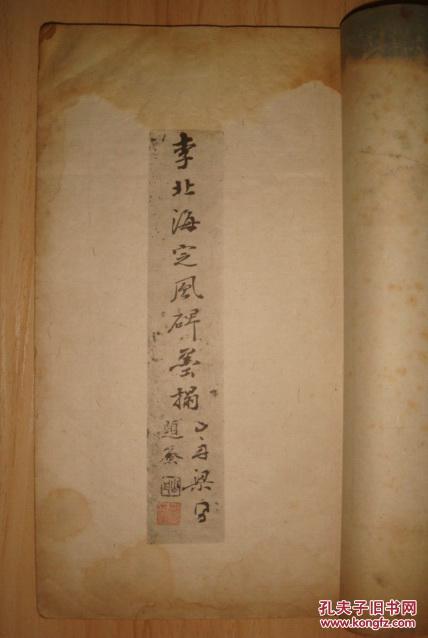 李北海定風碑墨搨
山舟梁
題簽
孔夫子旧书网
www.kongfz.com